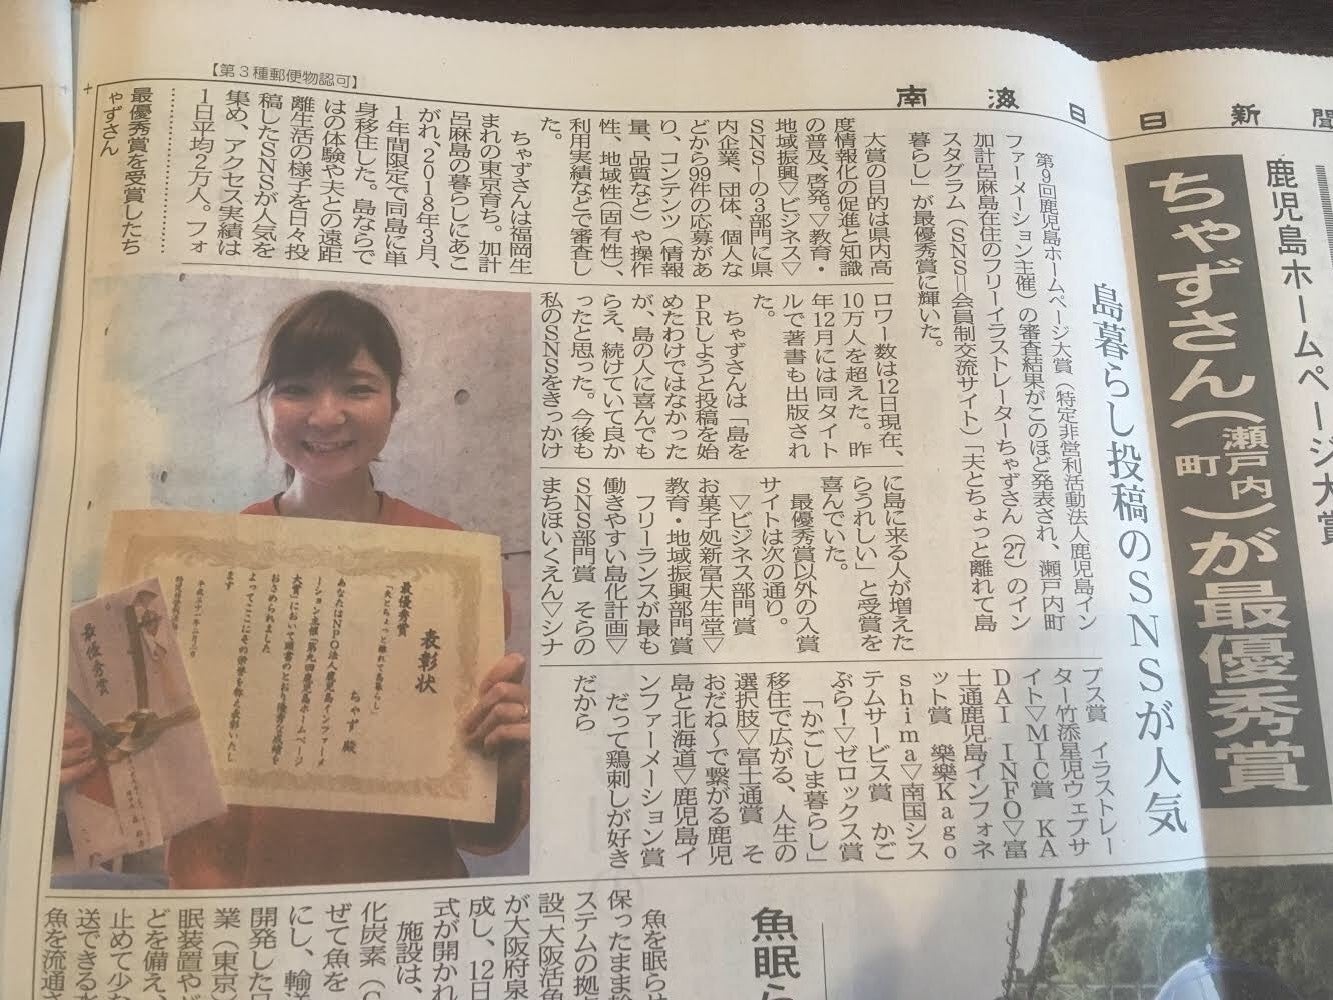 【第3種郵便物認可】
南海日日新聞
鹿児島ホームページ大賞
ちゃずさん(瀬戸内町)が最優秀賞
島暮らし投稿のSNSが人気
第9回鹿児島ホームページ大賞(特定非営利活動法人鹿児島イン
ファーメーション主催)の審査結果がこのほど発表され、瀬戸内町
加計呂麻島在住のフリーイラストレーターちゃずさん(27)のイン
スタグラム(SNS=会員制交流サイト)「夫とちょっと離れて島
暮らし」が最優秀賞に輝いた。
大賞の目的は県内高
度情報化の促進と知識
の普及、啓発。▽教育・
地域振興▽ビジネス▽
SNS―の3部門に県
内企業、団体、個人な
どから99件の応募があ
り、コンテンツ(情報
量、品質など)や操作
性、地域性(固有性)、
利用実績などで審査し
た。
ちゃずさんは福岡生
まれの東京育ち。加計
呂麻島の暮らしにあこ
がれ、2018年3月、
1年間限定で同島に単
身移住した。島ならで
はの体験や夫との遠距
離生活の様子を日々投
稿したSNSが人気を
集め、アクセス実績は
1日平均2万人。フォ
ロワー数は12日現在、
10万人を超えた。昨
年12月には同タイト
ルで著書も出版され
た。
ちゃずさんは「島を
PRしようと投稿を始
めたわけではなかった
が、島の人に喜んでも
らえ、続けていて良か
ったと思った。今後も
私のSNSをきっかけ
に島に来る人が増えた
らうれしい」と受賞を
喜んでいた。
最優秀賞以外の入賞
サイトは次の通り。
▽ビジネス部門賞
お菓子処新富大生堂▽
教育・地域振興部門賞
フリーランスが最も
働きやすい島化計画▽
SNS部門賞 そらの
まちほいくえん▽シナ
プス賞 イラストレー
ター竹添星児ウェブサ
イト▽MIC賞 KA
DAI INFO▽富
士通鹿児島インフォネ
ット賞 樂樂Kago
shima▽南国シス
テムサービス賞 かご
ぶら!▽ゼロックス賞
「かごしま暮らし」
移住で広がる、人生の
選択肢▽富士通賞 そ
おだね〜で繋がる鹿児
島と北海道▽鹿児島イ
ンファーメーション賞
だって鶏刺しが好き
だから
最優秀賞を受賞したち
ゃずさん
表彰状
最優秀賞
「夫とちょっと離れて島暮らし」
ちゃず 殿
あなたはNPO法人鹿児島インファーメ
ーション主催「第九回鹿児島ホームページ
大賞」において頭書のとおり優秀な成績を
おさめられました
よってここにその栄誉を称え表彰いたし
ます
平成三十一年二月三日
最優秀賞
魚眠ら
魚を眠らせ
保ったまま輸
ステムの拠
設「大阪活魚
が大阪府泉
成し、12日
式が開かれ
施設は、
化炭素(C
ぜて魚を
にし、輸送
開発した日
業(東京)
眠装置やビ
どを備え、
止めて少な
送できる水
魚を流通さ